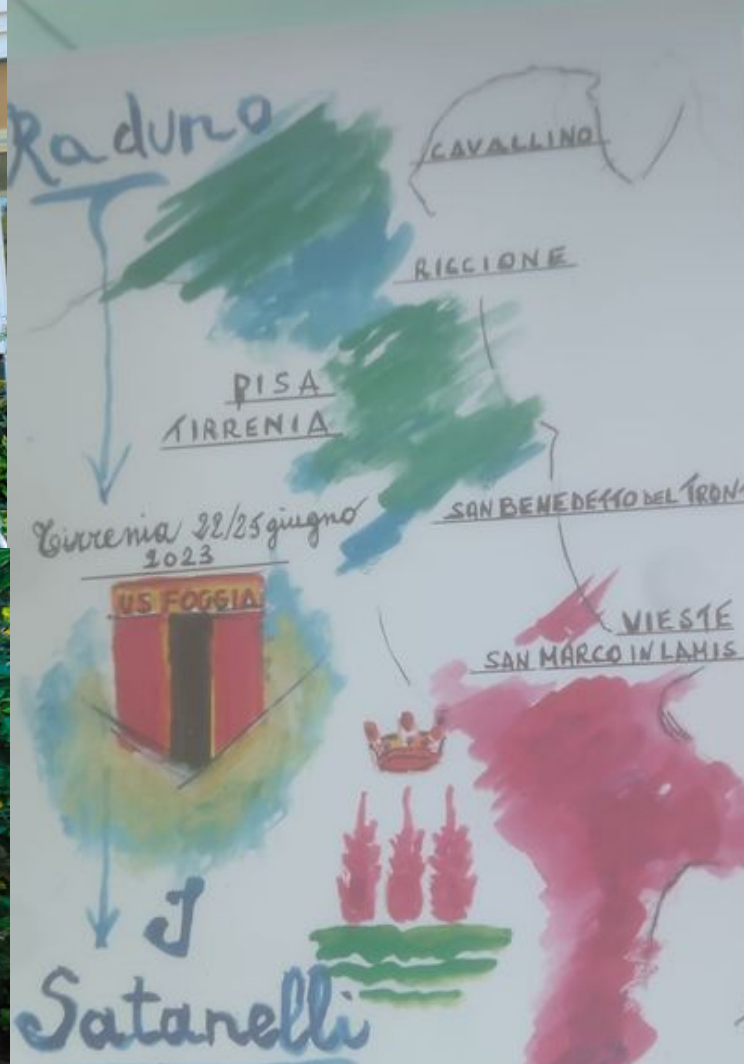 Raduno
CAVALLINO
RICCIONE
PISA
TIRRENIA
SAN BENEDETTO DEL TRON
Tirrenia 22/25 giugno
2023
US FOGGIA
VIESTE
SAN MARCO IN LAMIS
I
Satanelli